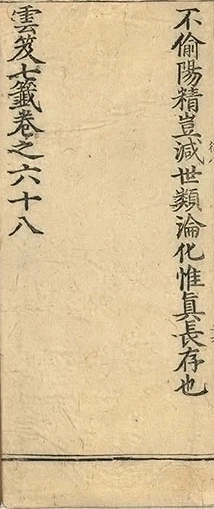 不偷陽精豈減世類淪化惟真長存也
雲笈七籤卷之六十八